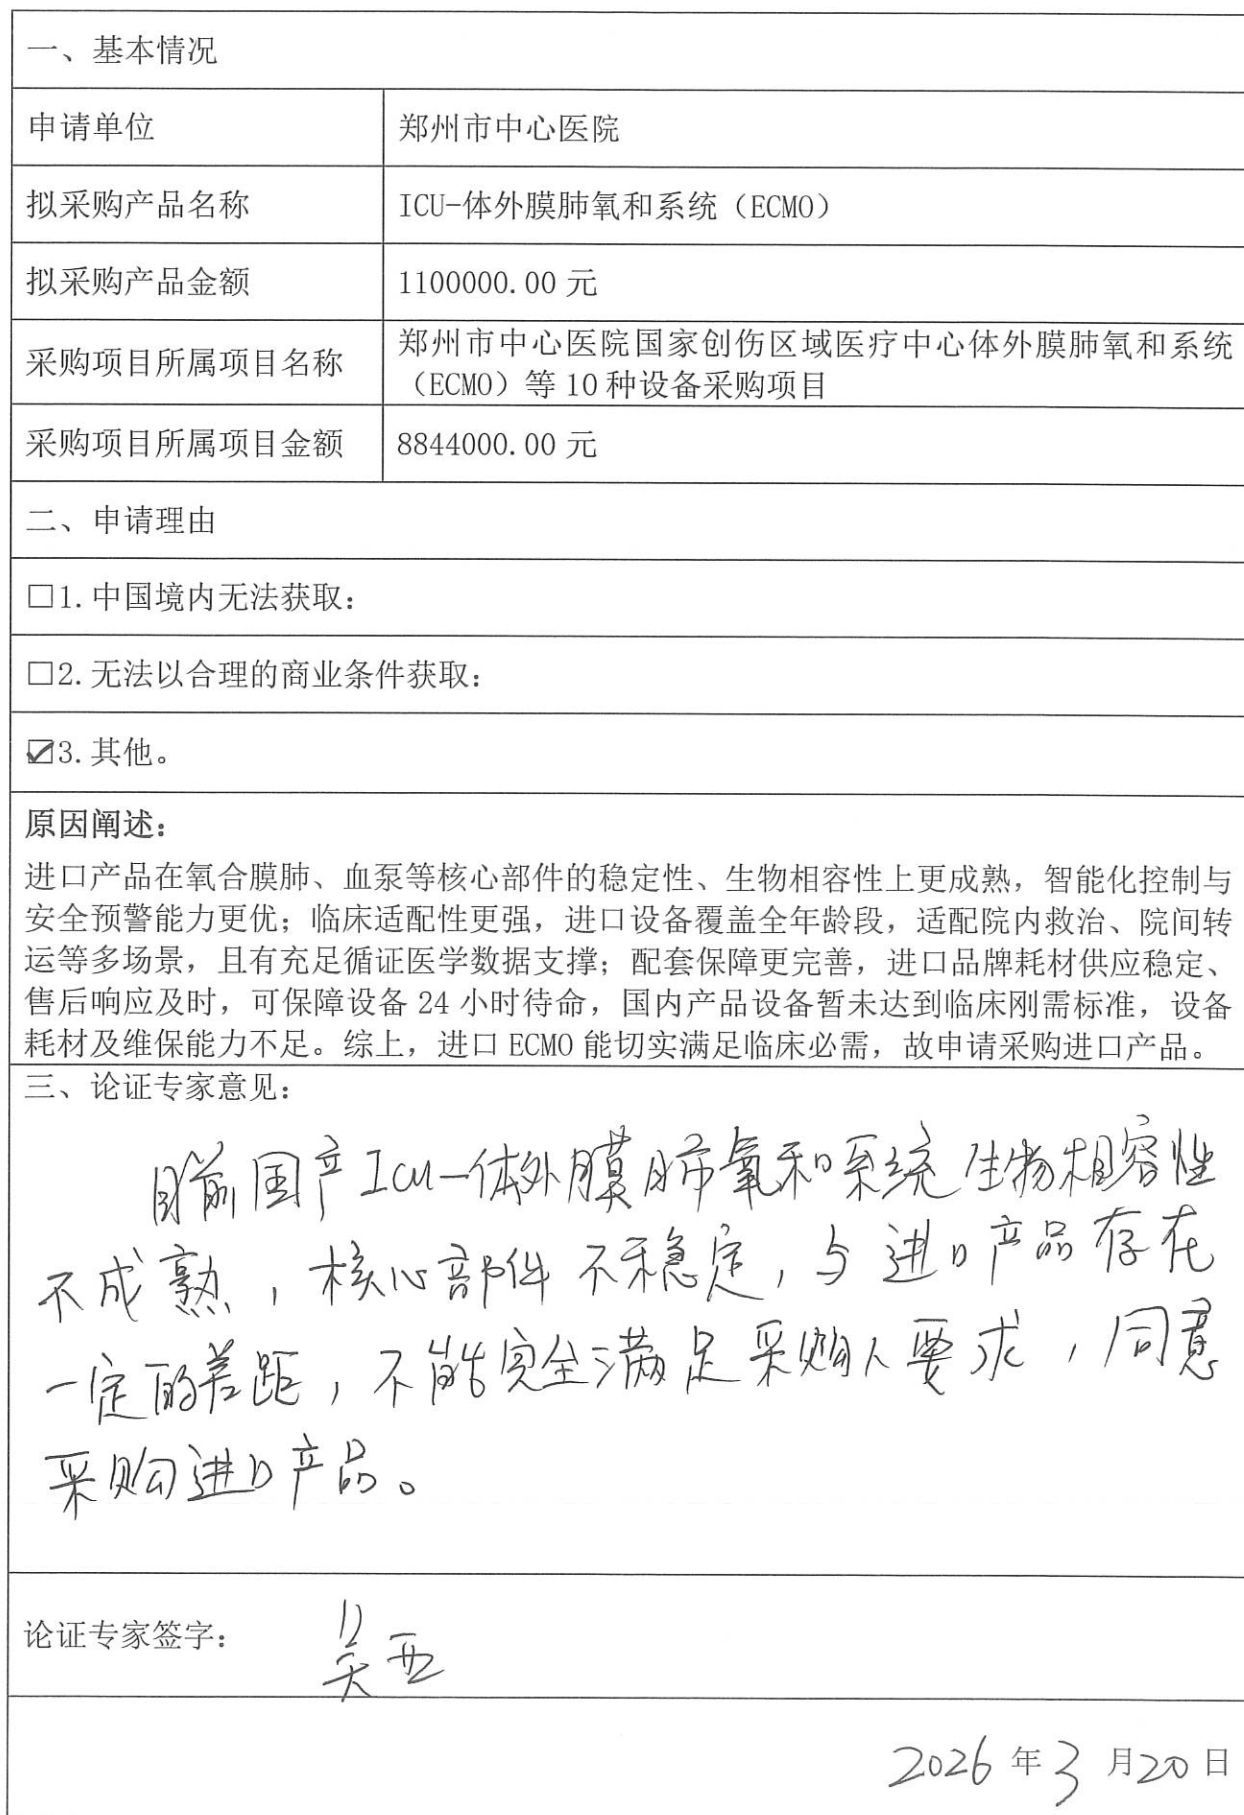 一、基本情况
申请单位 郑州市中心医院
拟采购产品名称 ICU-体外膜肺氧和系统（ECMO）
拟采购产品金额 1100000.00 元
采购项目所属项目名称 郑州市中心医院国家创伤区域医疗中心体外膜肺氧和系统
（ECMO）等 10 种设备采购项目
采购项目所属项目金额 8844000.00 元
二、申请理由
☐1. 中国境内无法获取：
☐2. 无法以合理的商业条件获取：
☑3. 其他。
原因阐述：
进口产品在氧合膜肺、血泵等核心部件的稳定性、生物相容性上更成熟，智能化控制与
安全预警能力更优；临床适配性更强，进口设备覆盖全年龄段，适配院内救治、院间转
运等多场景，且有充足循证医学数据支撑；配套保障更完善，进口品牌耗材供应稳定、
售后响应及时，可保障设备 24 小时待命，国内产品设备暂未达到临床刚需标准，设备
耗材及维保能力不足。综上，进口 ECMO 能切实满足临床必需，故申请采购进口产品。
三、论证专家意见：
目前国产ICU-体外膜肺氧和系统生物相容性
不成熟，核心部件不稳定，与进口产品存在
一定的差距，不能完全满足采购人要求，同意
采购进口产品。
论证专家签字： 吴亚
2026 年 3 月 20 日